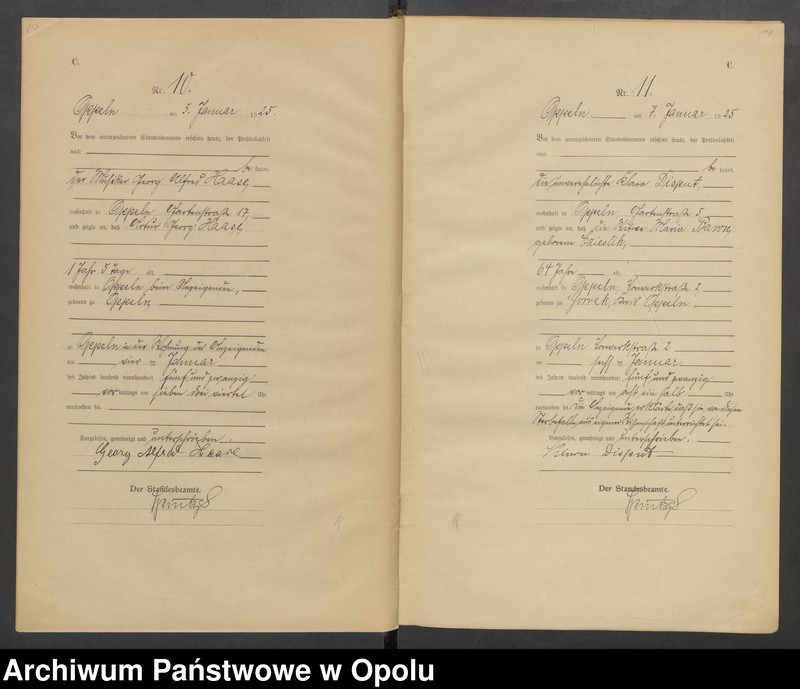 C.
Nr. 10.
Oppeln am 5. Januar 1925.
Vor dem unterzeichneten Standesbeamten erschien heute, der Persönlichkeit
nach
be kannt,
der Musiker Georg Alfred Haase,
wohnhaft in Oppeln, Gartenstraße 17,
und zeigte an, daß Artur Georg Haase,
1 Jahr 5 Tage alt,
wohnhaft in Oppeln beim Anzeigenden,
geboren zu Oppeln
zu Oppeln in der Wohnung des Anzeigenden
am vier ten Januar
des Jahres tausend neunhundert fünfundzwanzig
vor mittags um sieben drei viertel Uhr
verstorben sei.
Vorgelesen, genehmigt und unterschrieben.
Georg Alfred Haase
Der Standesbeamte.
C.
Nr. 11.
Oppeln am 7. Januar 1925
Vor dem unterzeichneten Standesbeamten erschien heute, der Persönlichkeit
nach
be kannt,
die unverehelichte Klara Disput,
wohnhaft in Oppeln, Gartenstraße 5
und zeigte an, daß die Witwe Maria Baron
geborene
64 Jahre alt,
wohnhaft in Oppeln, 2,
geboren zu Gorrek, Kreis Oppeln
zu Oppeln 2
am sech sten Januar
des Jahres tausend neunhundert fünfundzwanzig
vor mittags um acht ein halb Uhr
verstorben sei. Die Anzeigende erklärte, daß sie von diesem
Sterbefalle aus eigener Wissenschaft unterrichtet sei.
Vorgelesen, genehmigt und unterschrieben.
Disput
Der Standesbeamte.
Archiwum Państwowe w Opolu